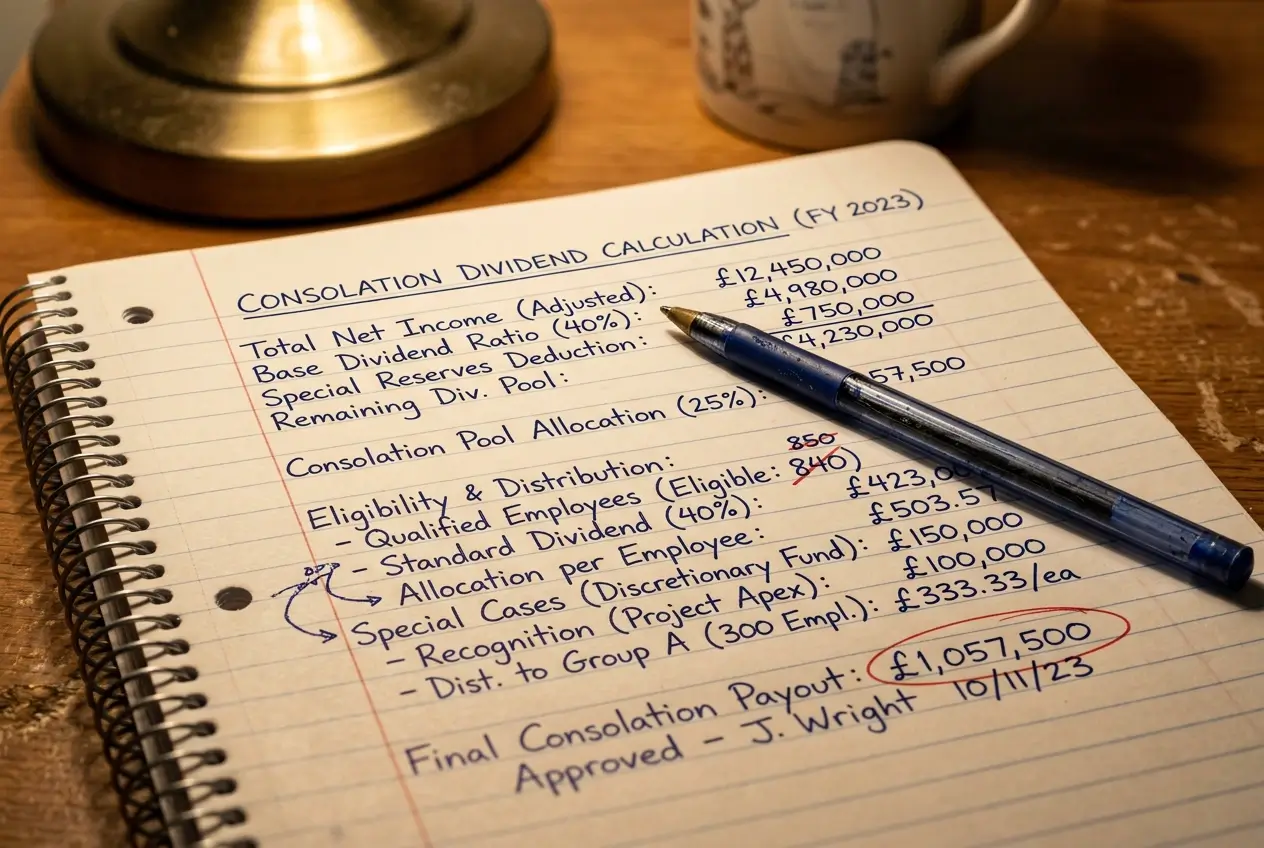 CONSOLATION DIVIDEND CALCULATION (FY 2023)
Total Net Income (Adjusted): £12,450,000
Base Dividend Ratio (40%): £4,980,000
Special Reserves Deduction: £750,000
Remaining Div. Pool: £4,230,000
Consolation Pool Allocation (25%): 57,500
Eligibility & Distribution:
850
- Qualified Employees (Eligible: 840)
- Standard Dividend (40%): £423,0
Allocation per Employee: £503.57
Special Cases (Discretionary Fund): £150,000
- Recognition (Project Apex): £100,000
- Dist. to Group A (300 Empl.): £333.33/ea
Final Consolation Payout: £1,057,500
Approved - J. Wright 10/11/23